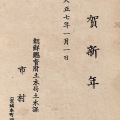 賀新年
大正七年一月一日
朝鮮總督府土木局土木課
市村